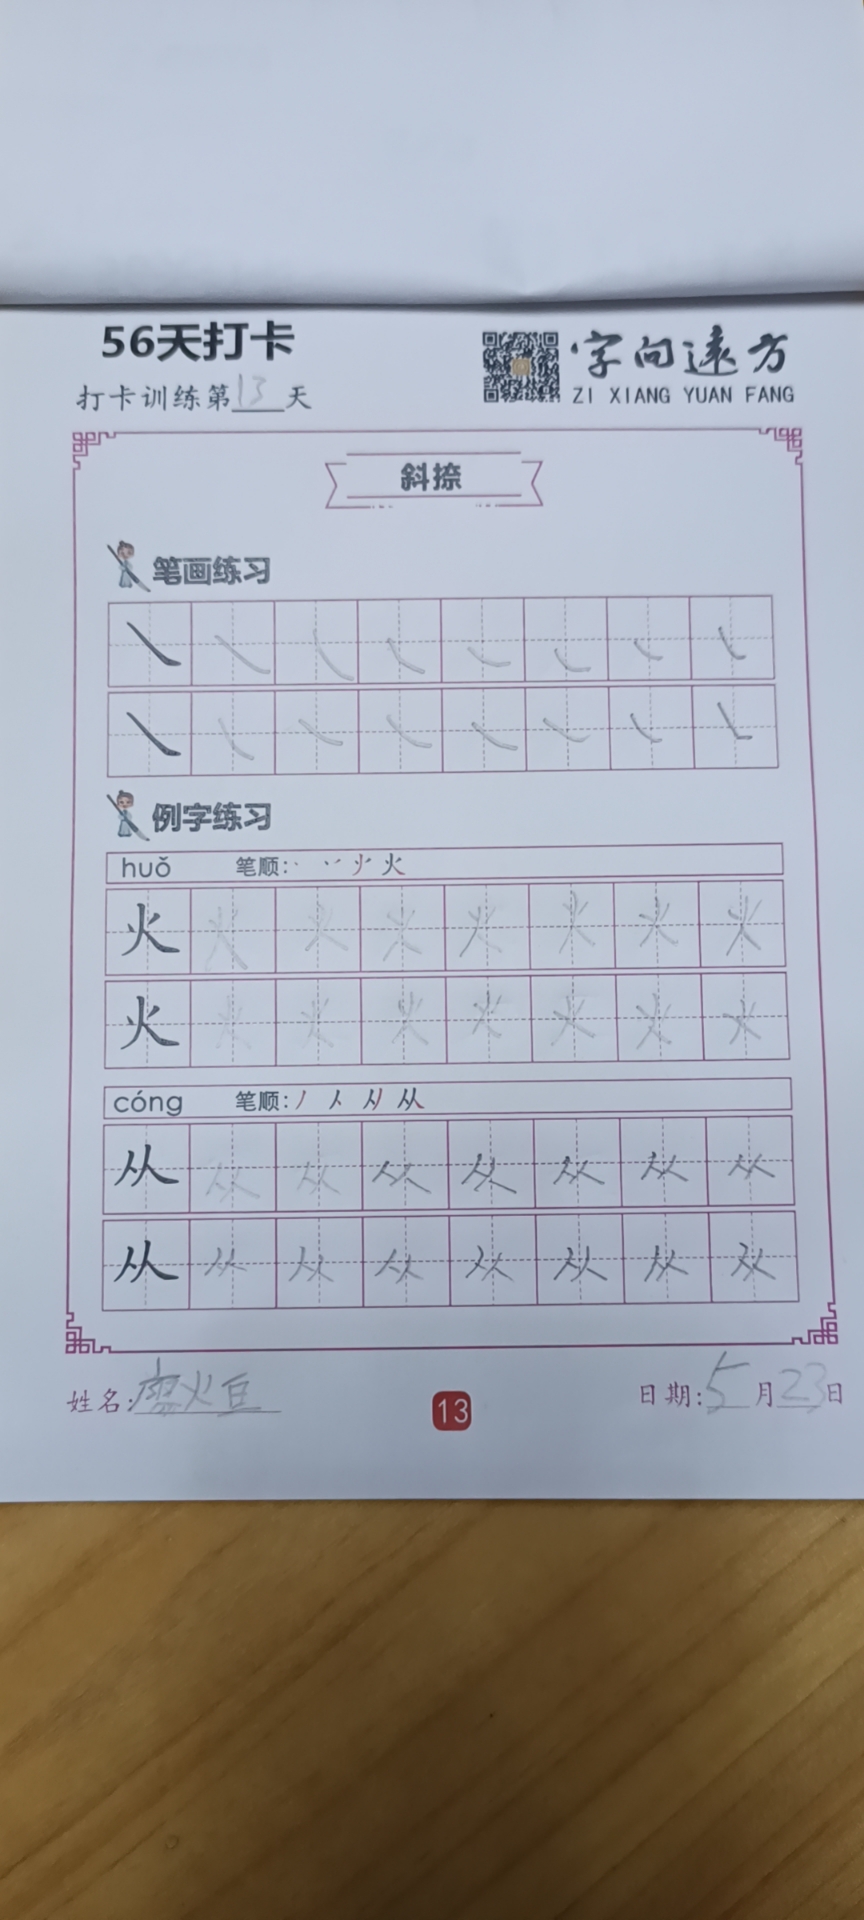 56天打卡
字向远方
打卡训练第13天
ZI XIANG YUAN FANG
斜捺
笔画练习
例字练习
huǒ 笔顺: 火
火 火 火 火 火 火 火 火
火 火 火 火 火 火 火 火
cóng 笔顺: 丿 人 从
从 从 从 从 从 从 从 从
从 从 从 从 从 从 从 从
姓名: 火豆
13
日期: 5月23日